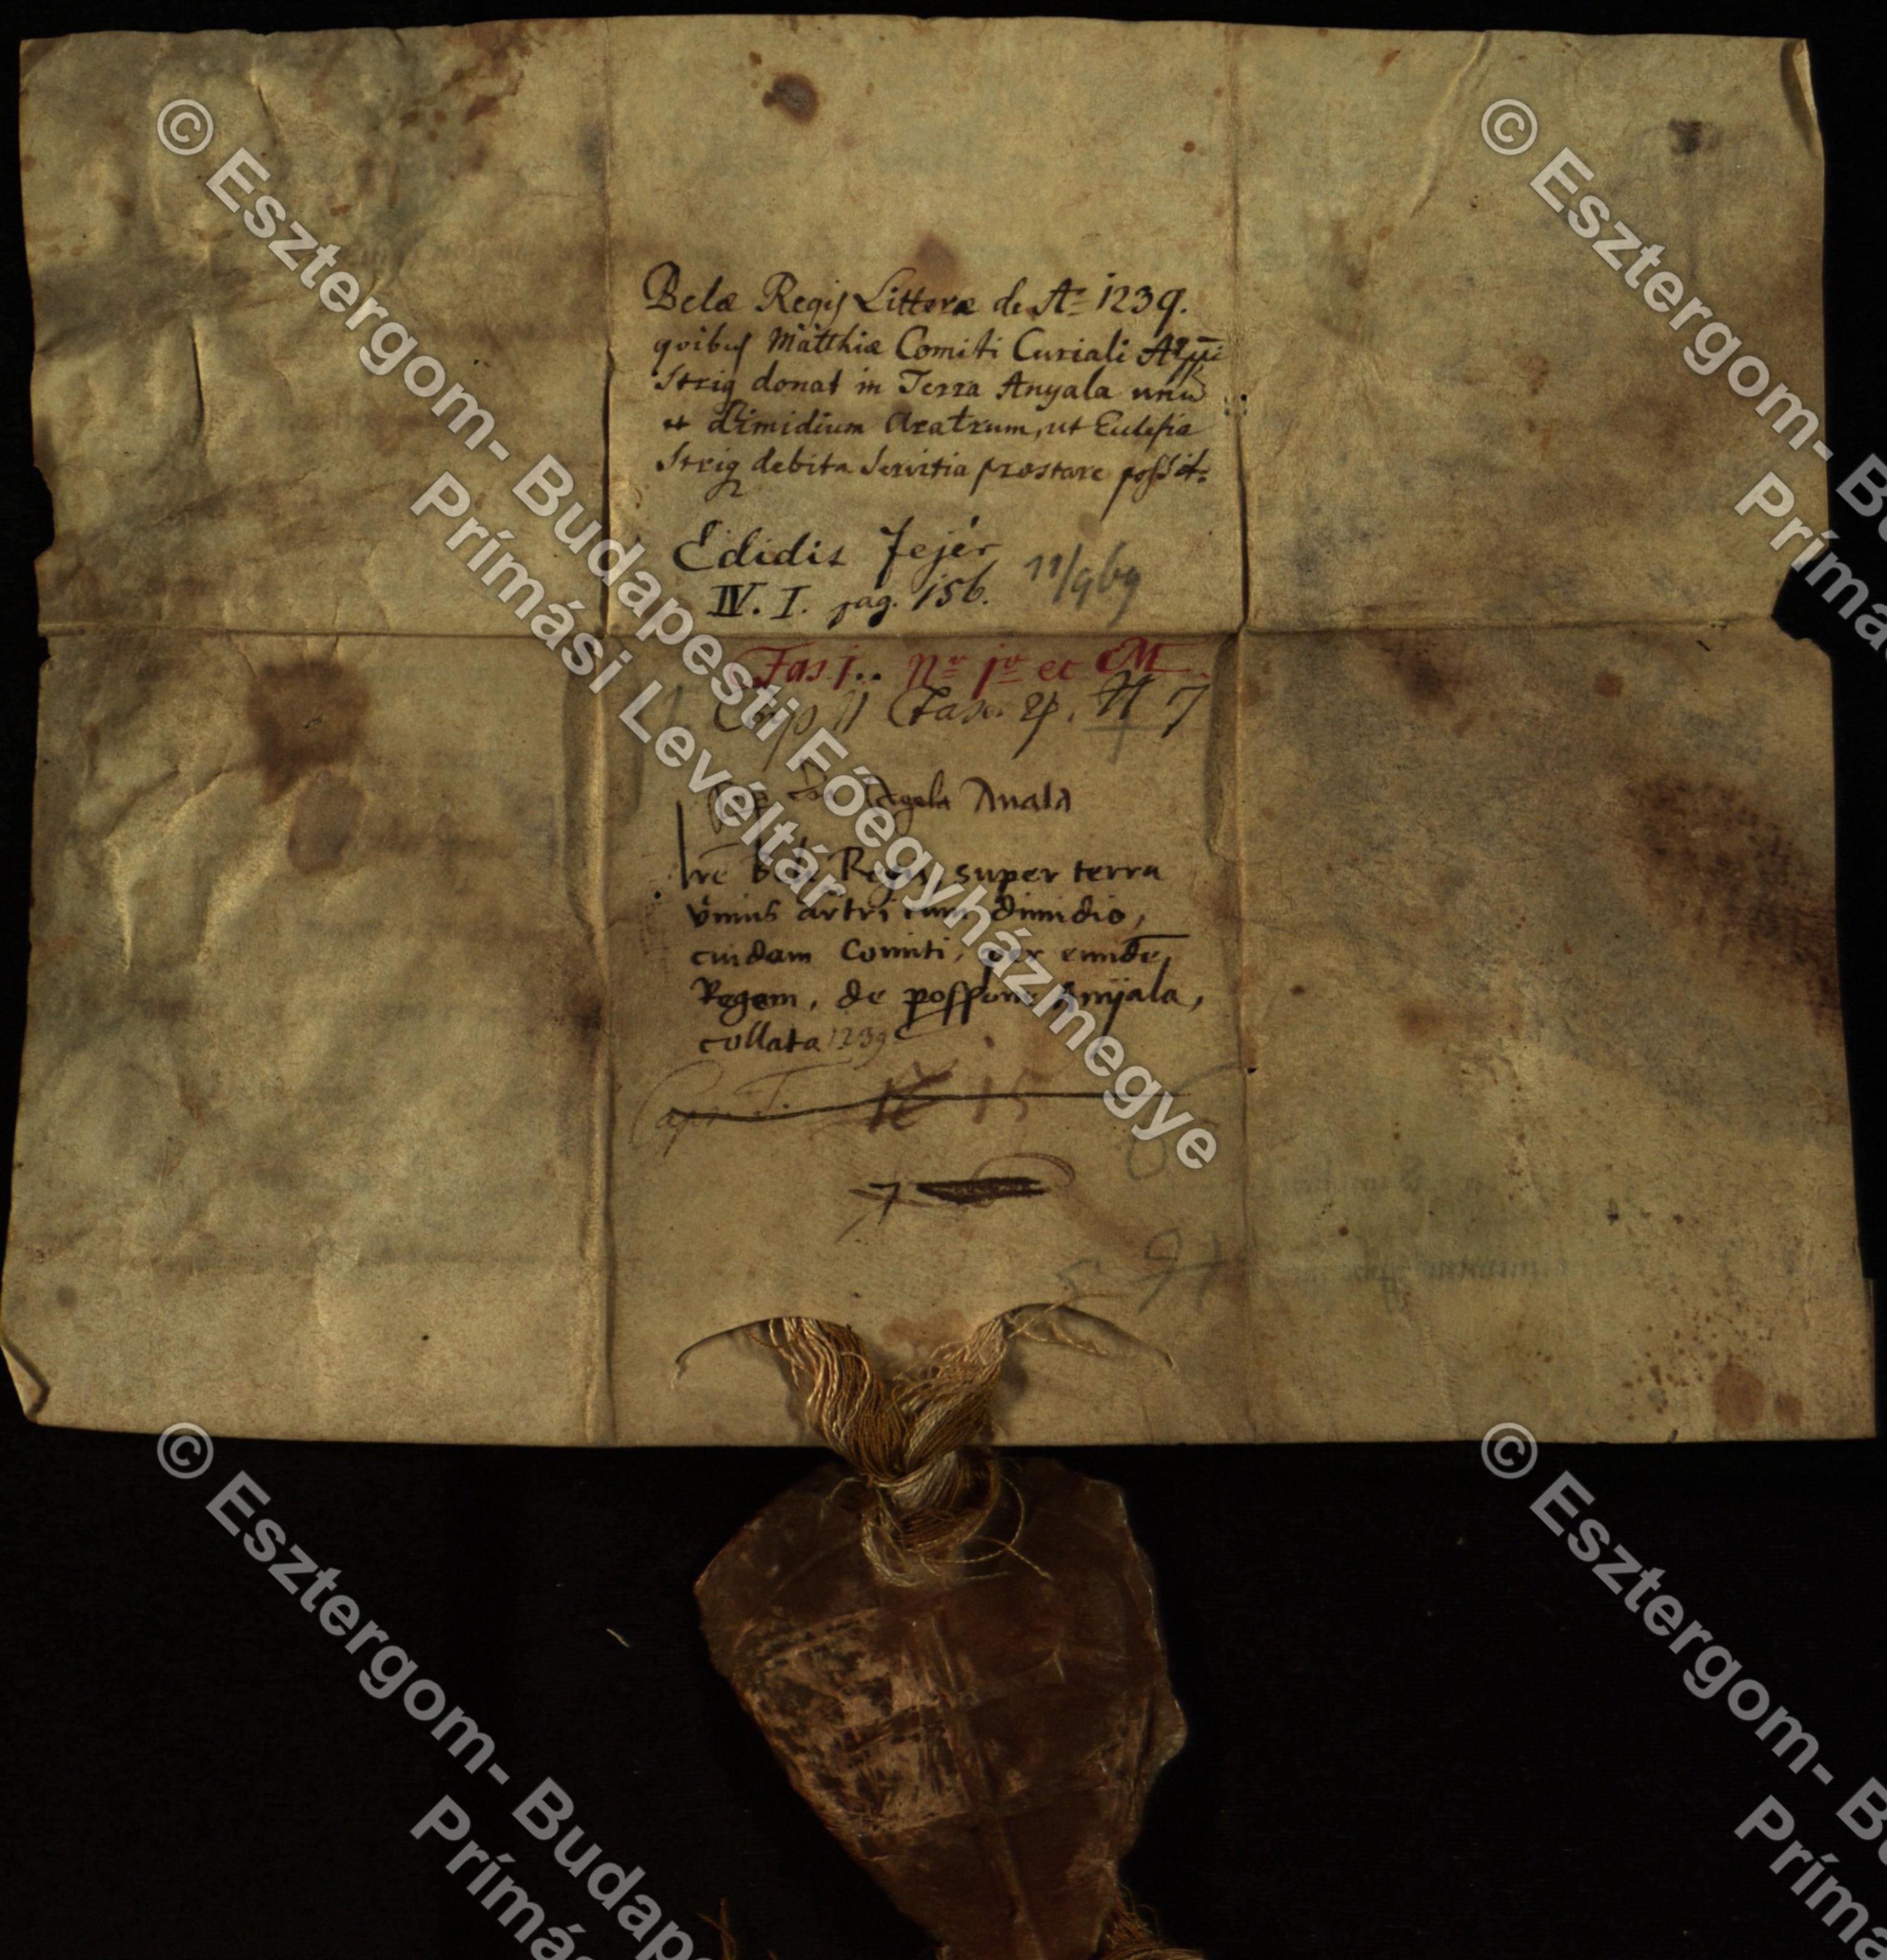 Belæ Regis Litteræ de Aº 1239.
quibus Matthiæ Comiti Curiali AEppi
Strig donat in Terra Anyala unū
et dimidium Aratrum, ut Eccleſia
Strig debita Servitia præstare poſsit.
Edidit Fejér
IV. I. pag. 156.
11/969
Fas. 1.. Nr 1º et M
Caps II Fasc. 7
Anala
lre Bele Regis super terra
vnius artri cum dimidio,
cuidam Comiti, per eundē
Regem, de poſſione Anÿala,
collata 1239
Caps. I. 15
7
© Esztergom- Budapesti Főegyházmegye
Prímási Levéltár
© Esztergom- Bu
Príma
© Esztergom- Budape
Prímás
© Esztergom- Bu
Príma